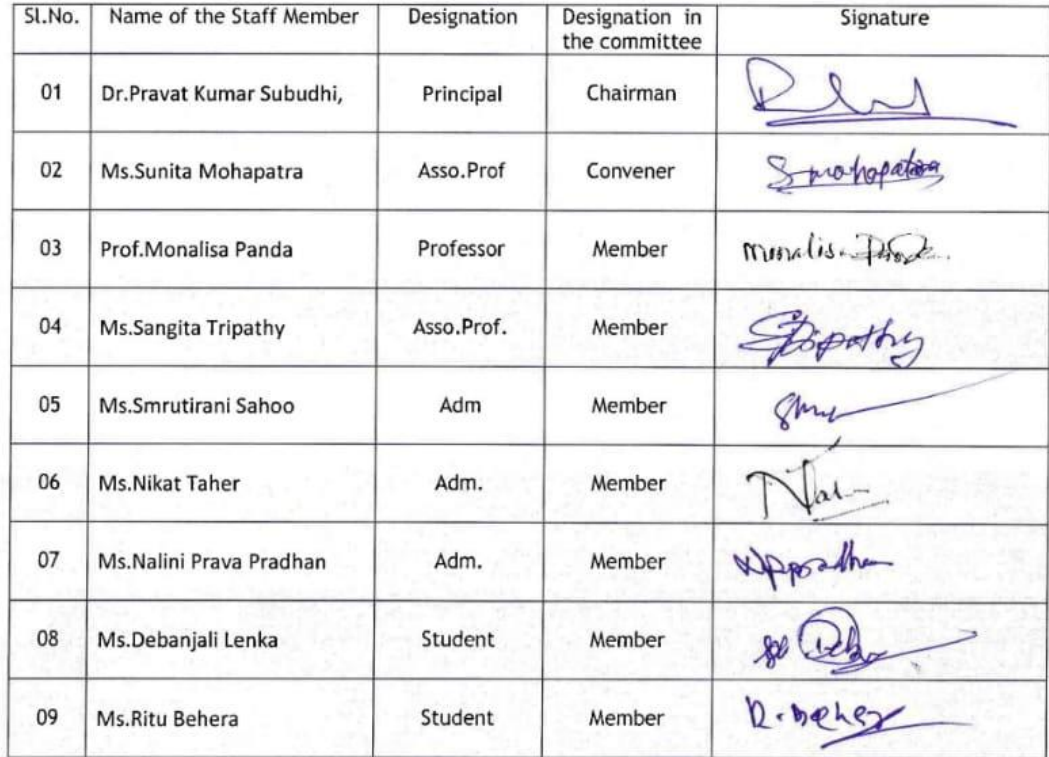 Sl.No. Name of the Staff Member Designation Designation in the committee Signature
01 Dr.Pravat Kumar Subudhi, Principal Chairman
02 Ms.Sunita Mohapatra Asso.Prof Convener Smohapatra
03 Prof.Monalisa Panda Professor Member Monalisa Panda
04 Ms.Sangita Tripathy Asso.Prof. Member STripathy
05 Ms.Smrutirani Sahoo Adm Member
06 Ms.Nikat Taher Adm. Member
07 Ms.Nalini Prava Pradhan Adm. Member NPpradhan
08 Ms.Debanjali Lenka Student Member
09 Ms.Ritu Behera Student Member R.behera